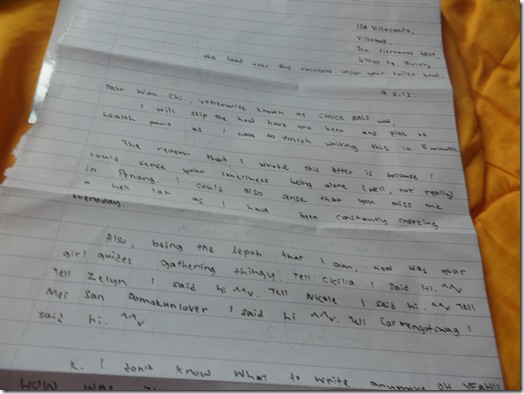 11A Villacourts,
Villamas,
Jln
47000 Sg. Buloh,
the land over the rainbow under your toilet bowl.
9.6.13.
Dear Wan Chi, otherwise known as CHUCK BASS
I will skip the how have you been and pick of
health part as I have to finish writing this in 5 minutes.
The reason that I wrote this letter is because I
could sense your loneliness being alone (well, not really)
in Penang. I could also sense that you miss me
a hell lot as I have been constantly sneezing
everyday.
Also, being the Kepoh that I am, how was your
girl guides gathering thingy. Tell Cicilia I said Hi. ^^v
Tell Zelyn I said hi ^^v. Tell Nicole I said hi. ^^v Tell
Mei San I said hi ^^v. Tell I
said hi. ^^v
K. I don't know what to write anymore OH YEAH!!
HOW WAS